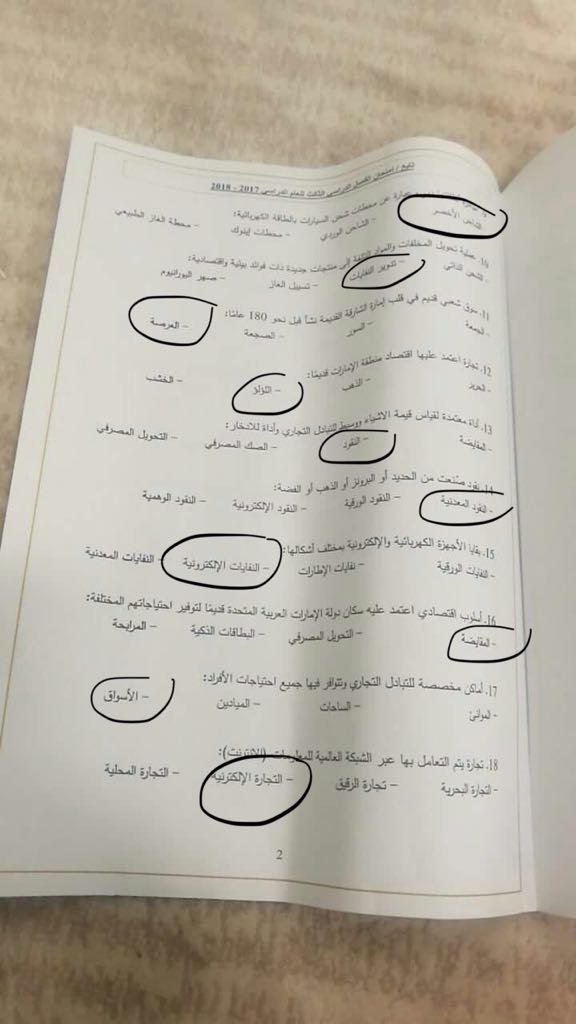 تابع / امتحان الفصل الدراسي الثالث للعام الدراسي 2017 - 2018
عبارة عن محطات شحن السيارات بالطاقة الكهربائية:
الشاحن الأخضر – الشاحن الوردي – محطات إينوك – محطة الغاز الطبيعي
10. عملية تحويل المخلفات والمواد إلى منتجات جديدة ذات فوائد بيئية واقتصادية:
- الشحن الذاتي – تدوير النفايات – تسييل الغاز – صهر اليورانيوم
11. سوق شعبي قديم في قلب إمارة الشارقة القديمة نشأ قبل نحو 180 عامًا:
- الجمعة – السور – الصجعة – العرصة
12. تجارة اعتمد عليها اقتصاد منطقة الإمارات قديمًا:
- الحرير – الذهب – اللؤلؤ – الخشب
13. أداة معتمدة لقياس قيمة الأشياء ووسيط للتبادل التجاري وأداة للادخار:
- المقايضة – النقود – الصك المصرفي – التحويل المصرفي
14. نقود صُنعت من الحديد أو البرونز أو الذهب أو الفضة:
- النقود المعدنية – النقود الورقية – النقود الإلكترونية – النقود الوهمية
15. بقايا الأجهزة الكهربائية والإلكترونية بمختلف أشكالها:
- النفايات الورقية – نفايات الإطارات – النفايات الإلكترونية – النفايات المعدنية
16. أسلوب اقتصادي اعتمد عليه سكان دولة الإمارات العربية المتحدة قديمًا لتوفير احتياجاتهم المختلفة:
- المقايضة – التحويل المصرفي – البطاقات الذكية – المرابحة
17. أماكن مخصصة للتبادل التجاري وتتوافر فيها جميع احتياجات الأفراد:
- الموانئ – الساحات – الميادين – الأسواق
18. تجارة يتم التعامل بها عبر الشبكة العالمية للمعلومات (الانترنت):
- التجارة البحرية – تجارة الرقيق – التجارة الإلكترونية – التجارة المحلية
2